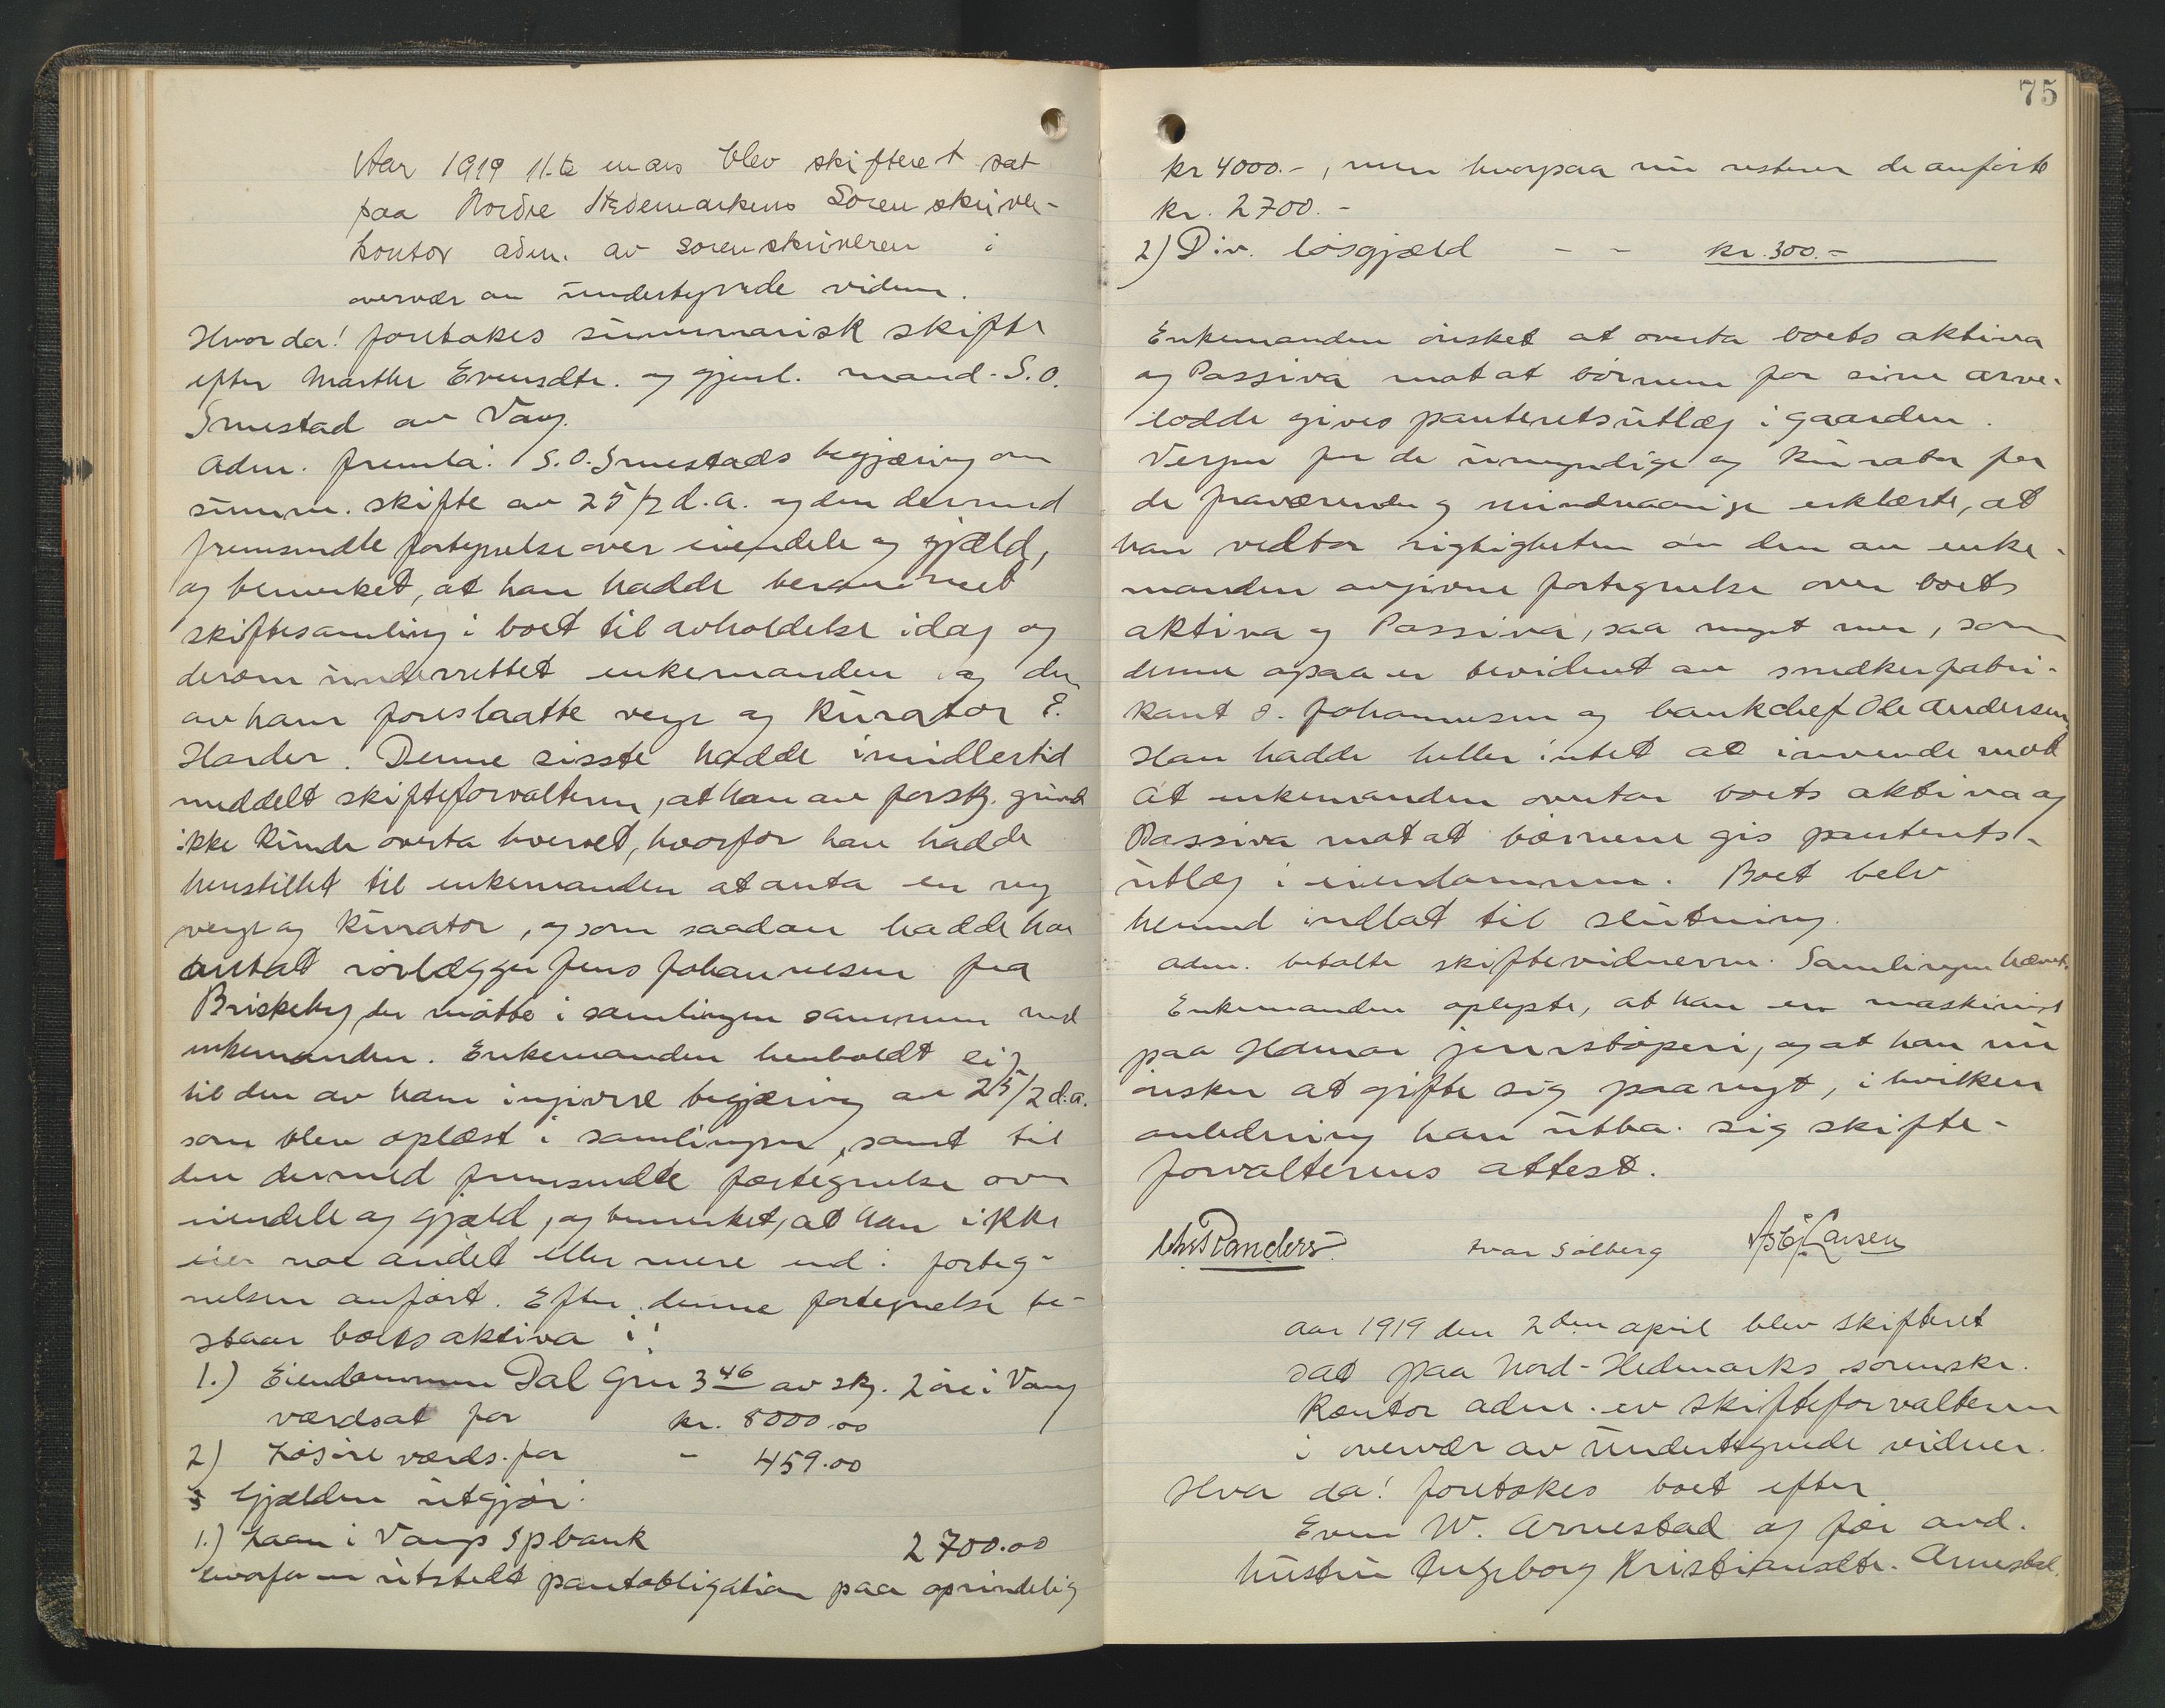 Aar 1919 11.te mars blev skifteret sat
paa Nordre Hedemarkens Sorenskriver-
kontor adm. av sorenskriveren i
overvær av undertegnede vidner.
Hvor da! foretokes summarisk skifte
efter Marthe Evensdtr. og gjenl. mand S.O.
Smestad av Vang.
Adm. fremla: S.O. Smestads begjæring om
summ. skifte av 25/2 d.a. og den dermed
fremsendte fortegnelse over eiendele og gjæld,
og bemerket, at han hadde berammet
skiftesamling i boet til avholdelse idag og
derom underrettet enkemanden og den
av ham foreslaatte verge og kurator E.
Harder. Denne sisste hadde imidlertid
meddelt skifteforvalteren, at han av forskj. grunde
ikke kunde overta hvervet, hvorfor han hadde
henstillet til enkemanden at anta en ny
verge og kurator, og som saadan hadde han
antat rørlægger Jens Johannesen fra
Briskeby, der møtte i samlingen sammen med
enkemanden. Enkemanden henholdt sig
til den av ham ingivne begjæring av 25/2 d.a.
som blev oplæst i samlingen, samt til
den dermed fremsendte fortegnelse over
eiendele og gjæld, og bemerket, at han ikke
eier noe andet eller mere end i forteg-
nelsen anført. Efter denne fortegnelse be-
staar boets aktiva i:
1.) Eiendommen Dal Gnr 3 46 av skj. 2 øre i Vang
værdsat for kr. 8000.00
2) Løsøre værds. for - 459.00
Gjælden utgjør:
1.) Laan i Vangs Spbank 2700.00
hvorfor er utstedt pantobligation paa oprindelig
75
kr 4000.-, men hvorpaa nu resterer de anførte
kr. 2700.-
2) Div. løsgjæld - - kr. 300.-
Enkemanden ønsket at overta boets aktiva
og Passiva mot at børnene for sine arve-
lodde gives panteretsutlæg i gaarden.
Vergen for de umyndige og kurator for
de fraværende og mindreaarige erklærte, at
han vedtar rigtigheten av den av enke-
manden avgivne fortegnelse over boets
aktiva og Passiva, saa meget mer, som
denne ogsaa er bevidnet av snedkerfabri-
kant J. Johannesen og bankchef Ole Andersen
Han hadde heller intet at invende mod
at enkemanden overtar boets aktiva og
Passiva mot at børnene gis panterets-
utlæg i eiendommen. Boet belv
hermed indlat til slutning.
Adm. betalte skiftevidnerne. Samlingen hævet.
Enkemanden oplyste, at han er maskinist
paa Hamar jernstøperi, og at han nu
ønsker at gifte sig paa nyt, i hvilken
anledning han utba sig skifte-
forvalterens attest.
Chr Randers Ivar Sølberg Larsen
Aar 1919 den 2den april blev skifteret
sat paa Nord-Hedmarks sorenskr.
kontor adm. av skifteforvalteren
i overvær av undertegnede vidner.
Hvor da! foretokes boet efter
Even W. Arnestad og før avd.
hustru Ingeborg Kristiansdtr. Arnestad.